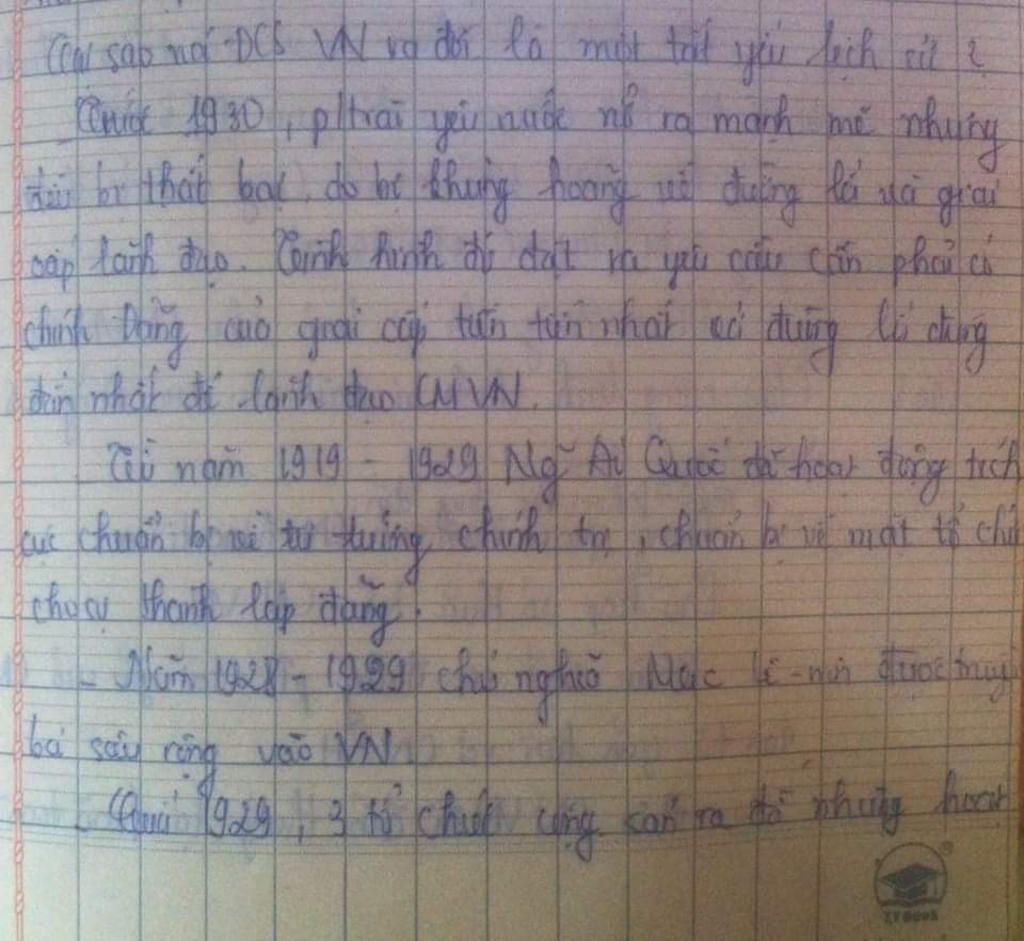 Tại sao nói ĐCS VN ra đời là một tất yếu lịch sử ?
Trước 1930, p/trào yêu nước nổ ra mạnh mẽ nhưng
đều bị thất bại, do bị khủng hoảng về đường lối và giai
cấp lãnh đạo. Tình hình đó đặt ra yêu cầu cần phải có
chính Đảng của giai cấp tiên tiến nhất có đường lối đúng
đắn nhất để lãnh đạo CMVN.
Từ năm 1919 - 1929 Ng~ Ái Quốc đã hoạt động tích
cực chuẩn bị về tư tưởng chính trị, chuẩn bị về mặt tổ chứ
cho sự thành lập đảng.
- Năm 1928 - 1929 chủ nghĩa Mác Lê-nin được truyề
bá sâu rộng vào VN
- 1929, 3 tổ chức cộng sản ra đời nhưng hoạt
ZY Book